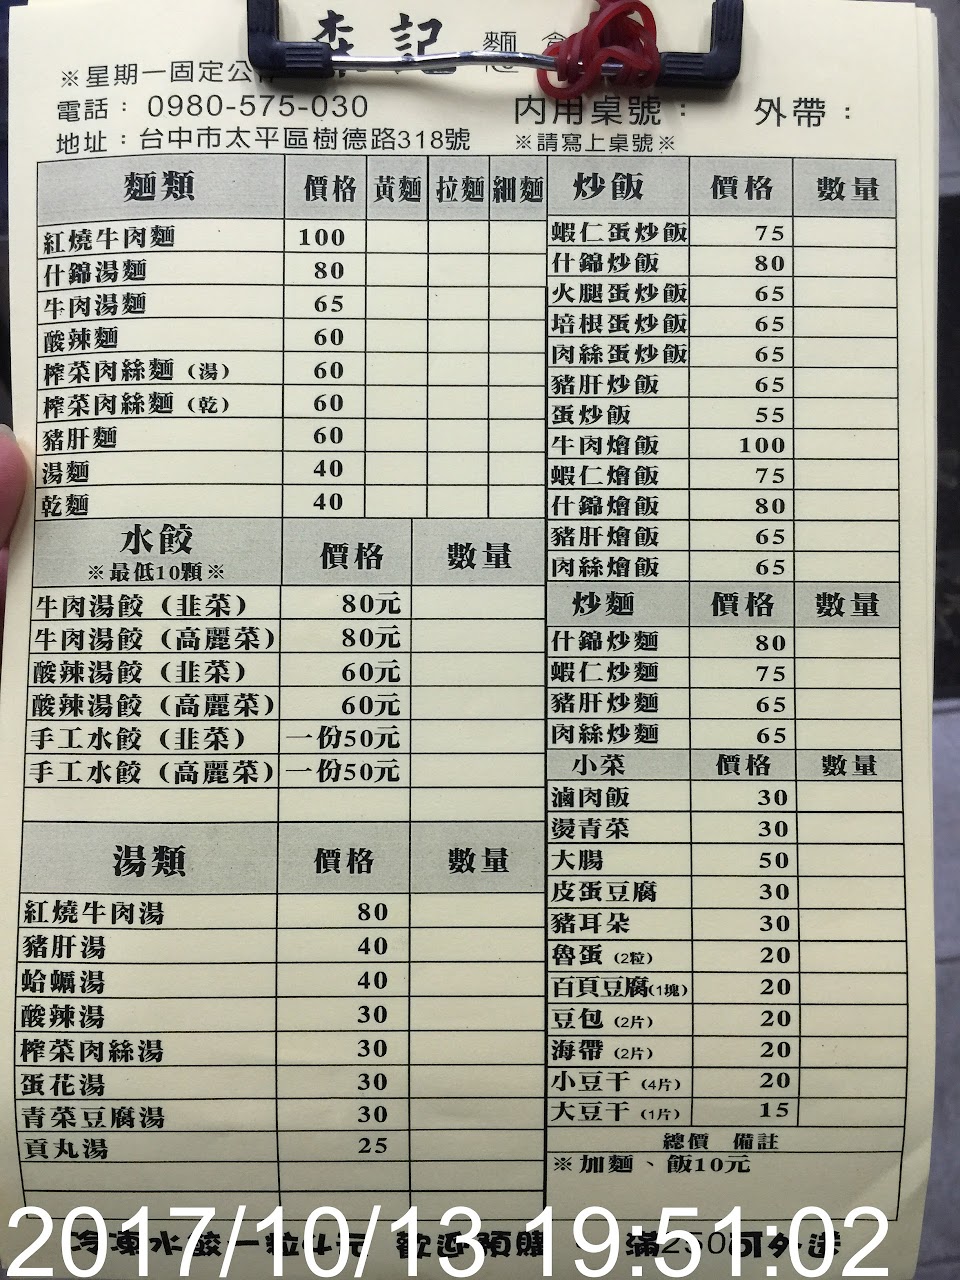 森記 麵食
※星期一固定公休
電話：0980-575-030
內用桌號： 外帶：
地址：台中市太平區樹德路318號
※請寫上桌號※
麵類 價格 黃麵 拉麵 細麵
紅燒牛肉麵 100
什錦湯麵 80
牛肉湯麵 65
酸辣麵 60
榨菜肉絲麵（湯） 60
榨菜肉絲麵（乾） 60
豬肝麵 60
湯麵 40
乾麵 40
水餃 價格 數量
※最低10顆※
牛肉湯餃（韭菜） 80元
牛肉湯餃（高麗菜） 80元
酸辣湯餃（韭菜） 60元
酸辣湯餃（高麗菜） 60元
手工水餃（韭菜） 一份50元
手工水餃（高麗菜） 一份50元
湯類 價格 數量
紅燒牛肉湯 80
豬肝湯 40
蛤蠣湯 40
酸辣湯 30
榨菜肉絲湯 30
蛋花湯 30
青菜豆腐湯 30
貢丸湯 25
炒飯 價格 數量
蝦仁蛋炒飯 75
什錦炒飯 80
火腿蛋炒飯 65
培根蛋炒飯 65
肉絲蛋炒飯 65
豬肝炒飯 65
蛋炒飯 55
牛肉燴飯 100
蝦仁燴飯 75
什錦燴飯 80
豬肝燴飯 65
肉絲燴飯 65
炒麵 價格 數量
什錦炒麵 80
蝦仁炒麵 75
豬肝炒麵 65
肉絲炒麵 65
小菜 價格 數量
滷肉飯 30
燙青菜 30
大腸 50
皮蛋豆腐 30
豬耳朵 30
魯蛋（2粒） 20
百頁豆腐（1塊） 20
豆包（2片） 20
海帶（2片） 20
小豆干（4片） 20
大豆干（1片） 15
總價 備註
※加麵、飯10元
冷凍水餃一粒4元 歡迎預購 滿250可外送
2017/10/13 19:51:02